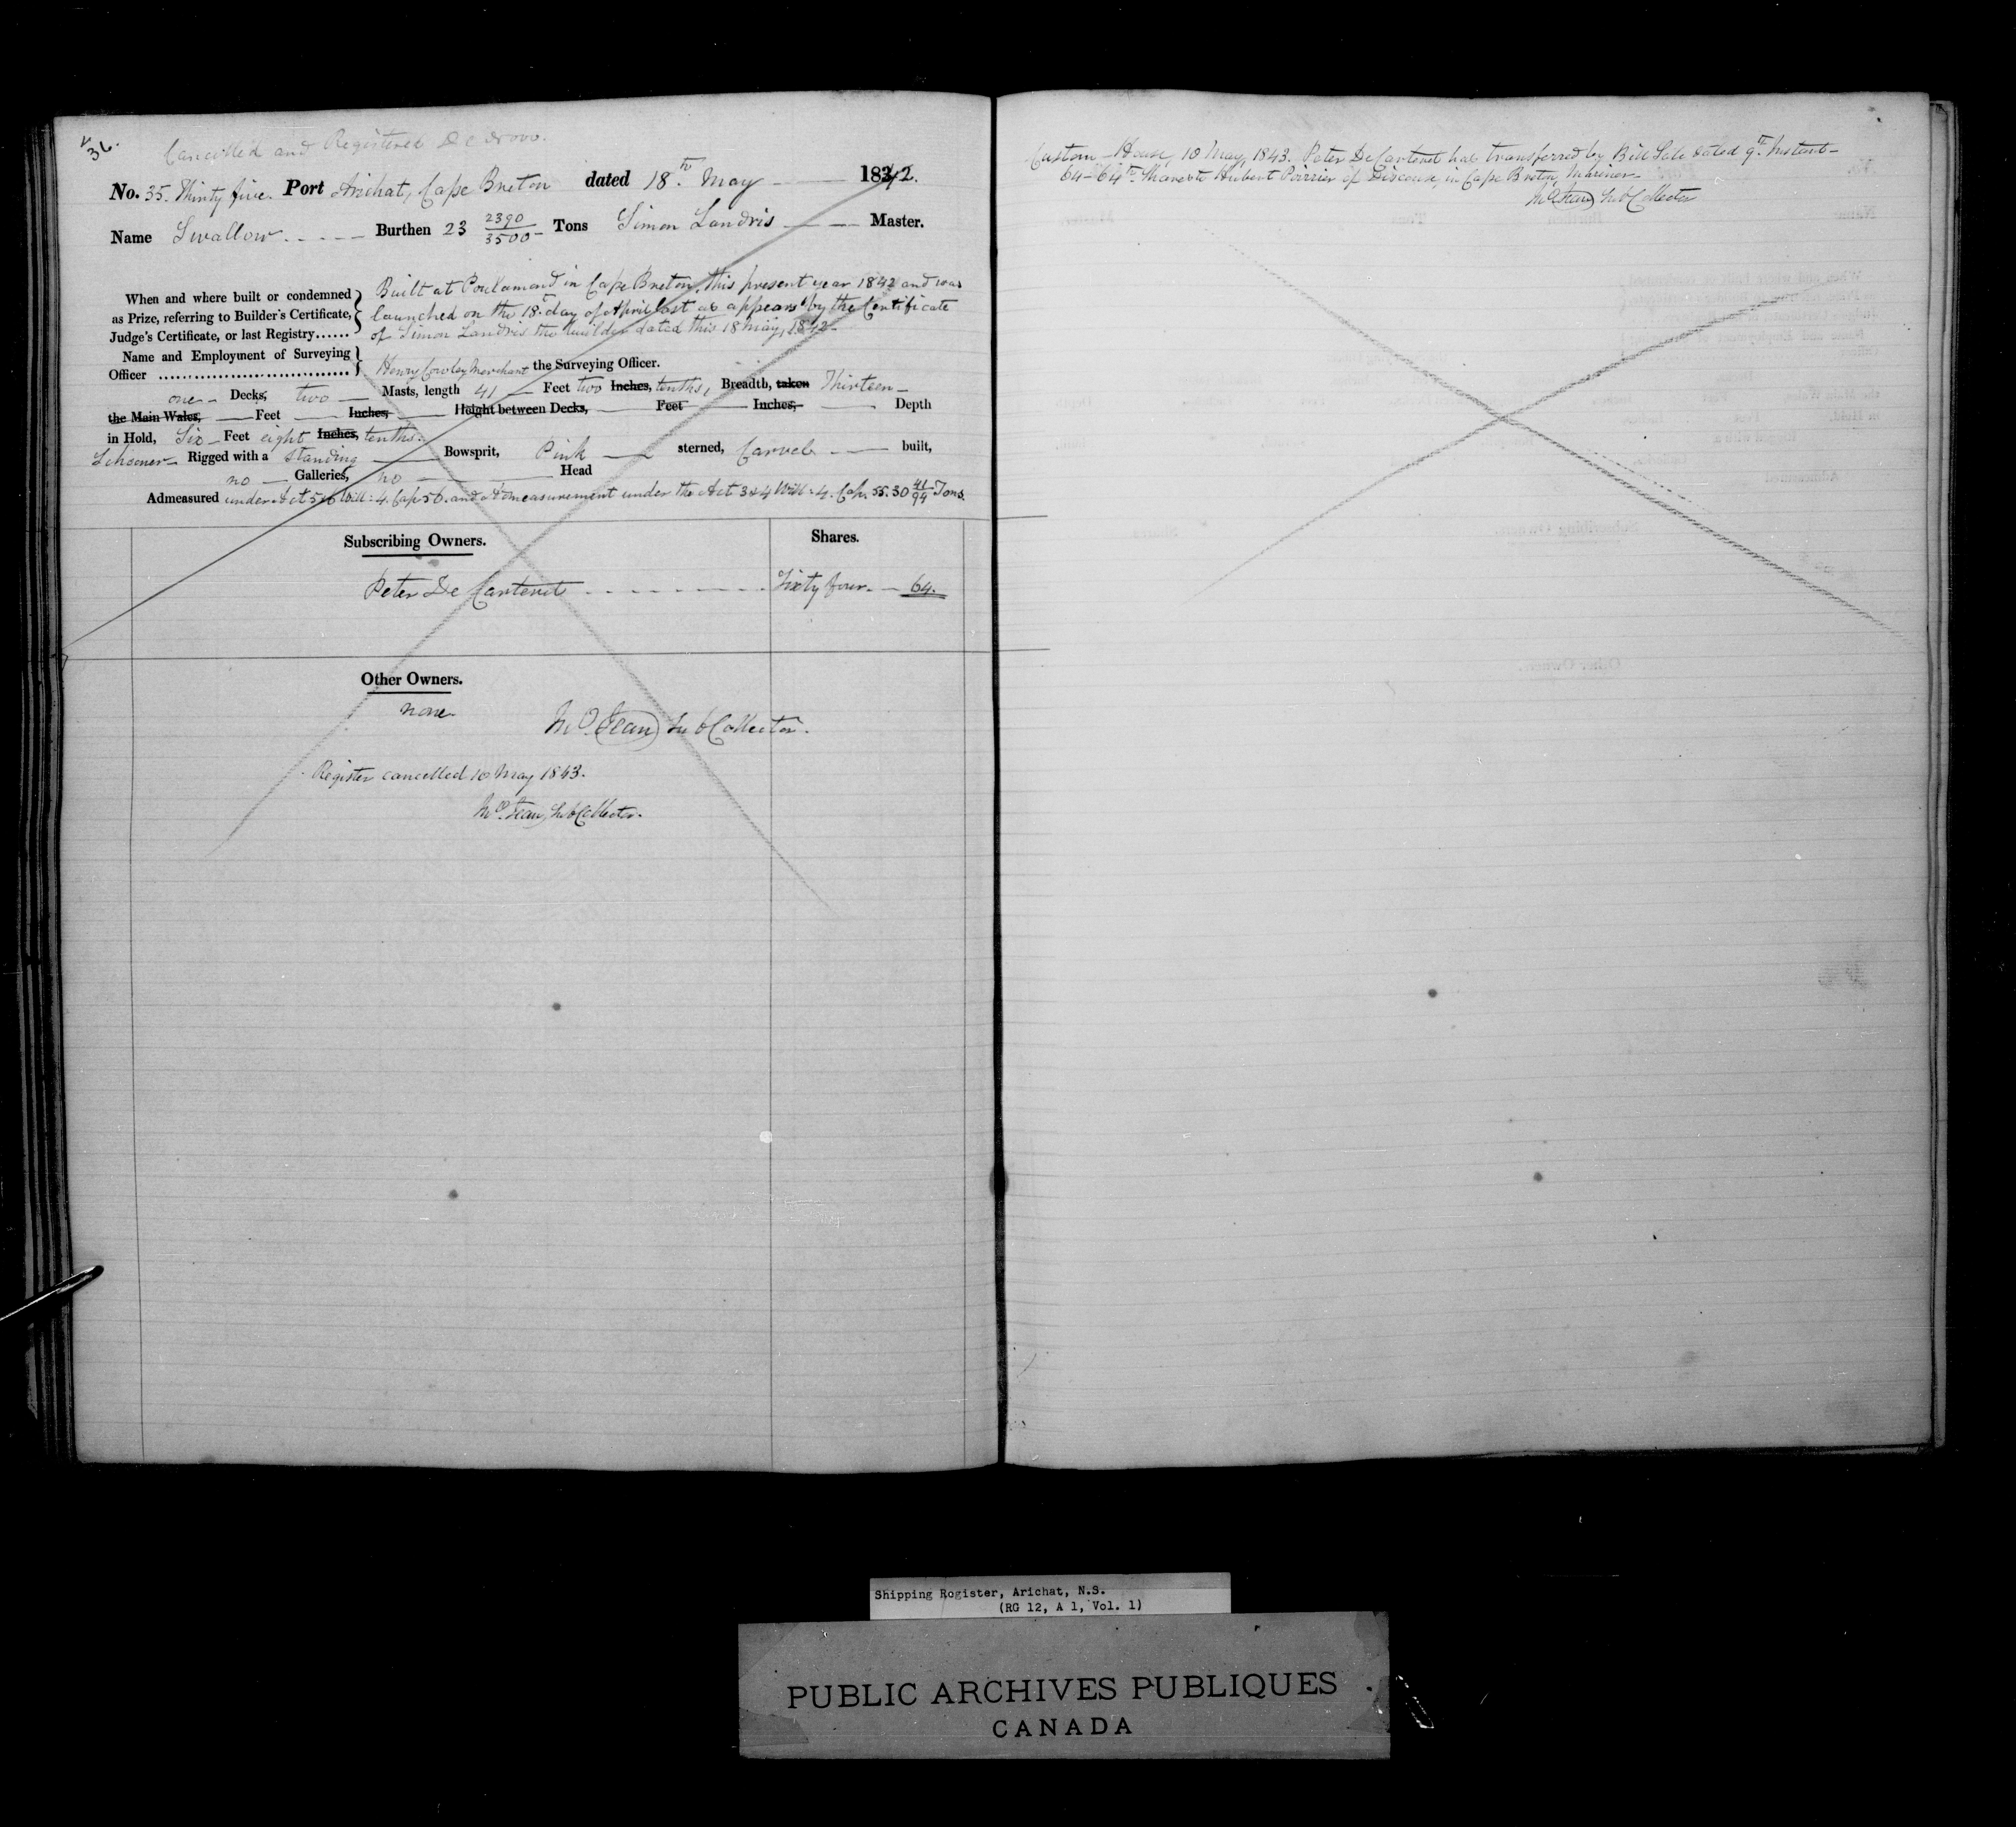 36.
Cancelled and Registered De Novo.
No. 35. Thirty five. Port Arichat, Cape Breton dated 18th May 1842.
Name Swallow Burthen 23 2390/3500 Tons Simon Landris Master.
When and where built or condemned as Prize, referring to Builder's Certificate, Judge's Certificate, or last Registry......
Built at Poulamond in Cape Breton, this present year 1842 and was
launched on the 18th day of April last as appears by the Certificate
of Simon Landris the builder dated this 18 May, 1842.
Name and Employment of Surveying
Officer ................................ Henry Cowley Merchant the Surveying Officer.
one Decks, two Masts, length 41 Feet two Inches, tenths, Breadth, taken Thirteen
the Main Wales, Feet Inches, Height between Decks, Feet Inches, Depth
in Hold, Six Feet eight Inches, tenths.
Schooner Rigged with a Standing Bowsprit, Pink sterned, Carvel built,
no Galleries, no Head
Admeasured under Act 5 & 6 Will: 4. Cap 56. and Admeasurement under the Act 3 & 4 Will: 4. Cap. 55. 30 41/94 Tons.
Subscribing Owners. Shares.
Peter De Carteret Sixty four. 64.
Other Owners.
none.
Sub Collector.
Register cancelled 10 May 1843.
Sub Collector.
Custom House, 10 May, 1843. Peter De Carteret has transferred by Bill Sale dated 9th Instant
64-64th Shares to Hubert Poirrier of Discouse, in Cape Breton, Mariner
Sub Collector
Shipping Register, Arichat, N.S.
(RG 12, A 1, Vol. 1)
PUBLIC ARCHIVES PUBLIQUES
CANADA